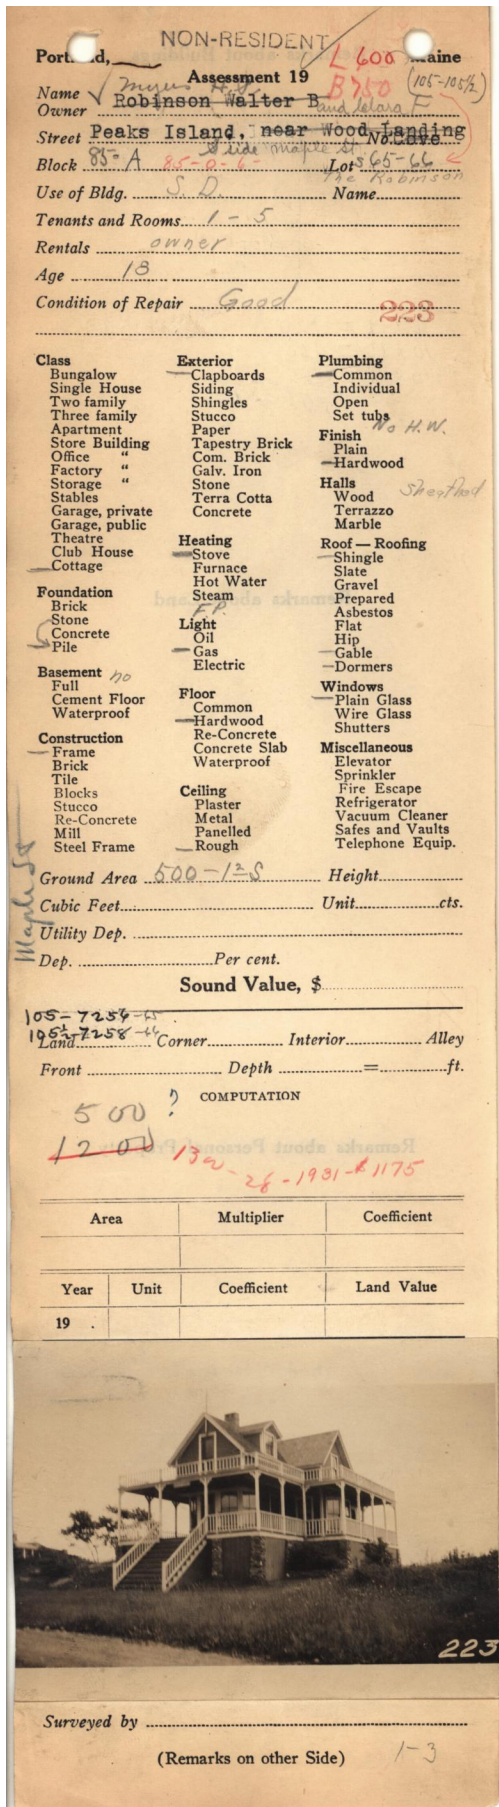 NON-RESIDENT
Portland, Maine
L 600
Assessment 19
B 750
(105-105½)
Name Myers H. J.
Owner Robinson Walter B and Clara F
Street Peaks Island, near Wood Landing
No. Cove
S side Maple St
Block 85-A 85-0-6- Lots 65-66
The Robinson
Use of Bldg. S. D. Name
Tenants and Rooms 1 - 5
Rentals owner
Age 18
Condition of Repair Good
223
Class
Bungalow
Single House
Two family
Three family
Apartment
Store Building
Office "
Factory "
Storage "
Stables
Garage, private
Garage, public
Theatre
Club House
Cottage
Foundation
Brick
Stone
Concrete
Pile
Basement no
Full
Cement Floor
Waterproof
Construction
Frame
Brick
Tile
Blocks
Stucco
Re-Concrete
Mill
Steel Frame
Exterior
Clapboards
Siding
Shingles
Stucco
Paper
Tapestry Brick
Com. Brick
Galv. Iron
Stone
Terra Cotta
Concrete
Heating
Stove
Furnace
Hot Water
Steam
F.P.
Light
Oil
Gas
Electric
Floor
Common
Hardwood
Re-Concrete
Concrete Slab
Waterproof
Ceiling
Plaster
Metal
Panelled
Rough
Plumbing
Common
Individual
Open
Set tubs
No H.W.
Finish
Plain
Hardwood
Halls
Wood Sheathed
Terrazzo
Marble
Roof — Roofing
Shingle
Slate
Gravel
Prepared
Asbestos
Flat
Hip
Gable
Dormers
Windows
Plain Glass
Wire Glass
Shutters
Miscellaneous
Elevator
Sprinkler
Fire Escape
Refrigerator
Vacuum Cleaner
Safes and Vaults
Telephone Equip.
Maple St
Ground Area 500-1½S Height
Cubic Feet Unit cts.
Utility Dep.
Dep. Per cent.
Sound Value, $
105-7256-65
105½-7258-66
Land Corner Interior Alley
Front Depth = ft.
COMPUTATION
500 ?
1200
28-1931-$1175
Area Multiplier Coefficient
Year Unit Coefficient Land Value
19 .
223
Surveyed by
(Remarks on other Side) 1-3